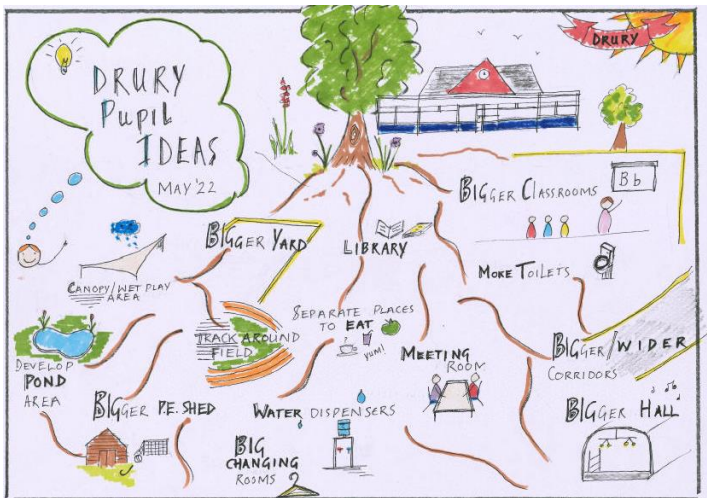 DRURY
PUPIL
IDEAS
MAY '22
DRURY
BIGGER CLASSROOMS
Bb
BIGGER YARD
LIBRARY
MORE TOILETS
CANOPY/WET PLAY
AREA
SEPARATE PLACES
TO EAT
YUM!
TRACK AROUND
FIELD
DEVELOP
POND
AREA
MEETING
ROOM
BIGGER/WIDER
CORRIDORS
BIGGER P.E. SHED
WATER DISPENSERS
BIGGER HALL
BIG
CHANGING
ROOMS